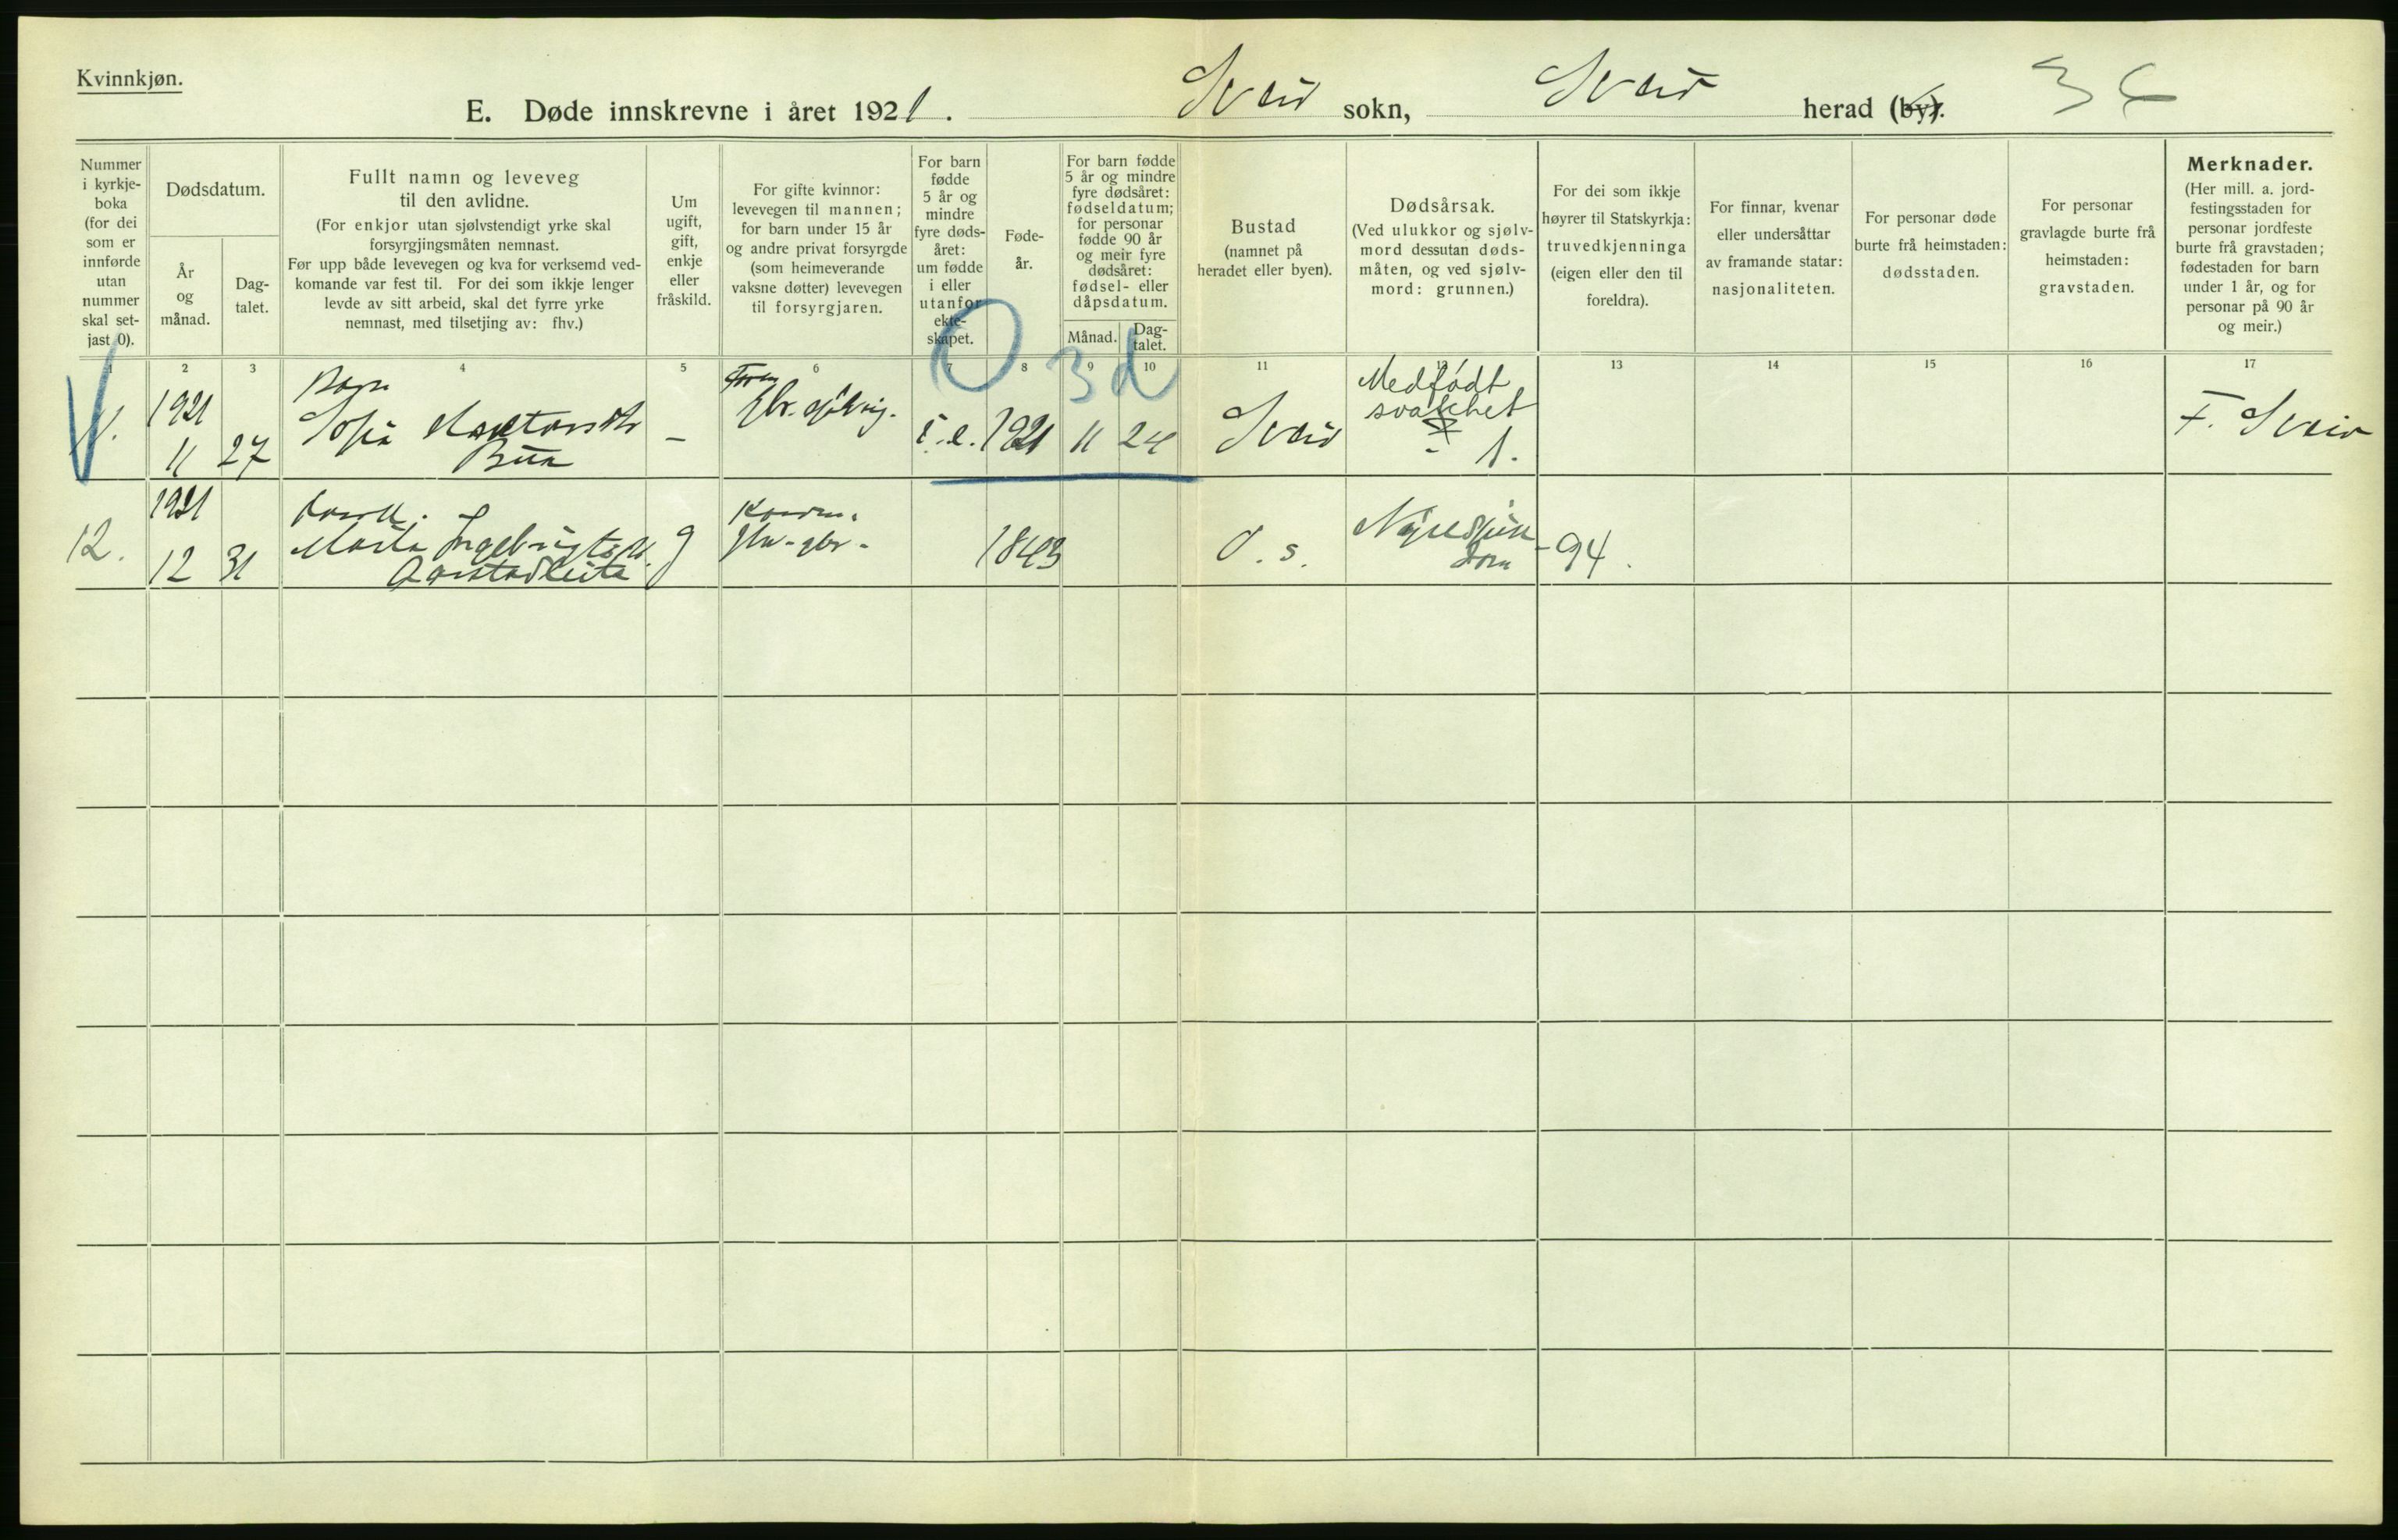 Kvinnkjøn.
E. Døde innskrevne i året 1921. Sveio sokn, Sveio herad (by).
Nummer i kyrkje-boka (for dei som er innførde utan nummer skal set-jast 0).
Dødsdatum.
År og månad.
Dag-talet.
Fullt namn og leveveg til den avlidne.
(For enkjor utan sjølvstendigt yrke skal forsyrgjingsmåten nemnast.
Før upp både levevegen og kva for verksemd ved-komande var fest til. For dei som ikkje lenger levde av sitt arbeid, skal det fyrre yrke nemnast, med tilsetjing av: fhv.)
Um ugift, gift, enkje eller fråskild.
For gifte kvinnor: levevegen til mannen; for barn under 15 år og andre privat forsyrgde (som heimeverande vaksne døtter) levevegen til forsyrgjaren.
For barn fødde 5 år og mindre fyre døds-året: um fødde i eller utanfor ekte-skapet.
Føde-år.
For barn fødde 5 år og mindre fyre dødsåret: fødseldatum; for personar fødde 90 år og meir fyre dødsåret: fødsel- eller dåpsdatum.
Månad.
Dag-talet.
Bustad
(namnet på heradet eller byen).
Dødsårsak.
(Ved ulukkor og sjølv-mord dessutan døds-måten, og ved sjølv-mord: grunnen.)
For dei som ikkje høyrer til Statskyrkja: truvedkjenninga (eigen eller den til foreldra).
For finnar, kvenar eller undersåttar av framande statar: nasjonaliteten.
For personar døde burte frå heimstaden: dødsstaden.
For personar gravlagde burte frå heimstaden: gravstaden.
Merknader.
(Her mill. a. jord-festingsstaden for personar jordfeste burte frå gravstaden; fødestaden for barn under 1 år, og for personar på 90 år og meir.)
1 2 3 4 5 6 7 8 9 10 11 12 13 14 15 16 17
0 3 d
Barn
1921
Medfødt
svakhet
11. 11 27 Sofia
Bua
– i. e. 1921 11 24 Sveio 1. F. Sveio
1921
12. 12 31 Marta Ingebrigtsdt.
g
1843 d. s. 94.